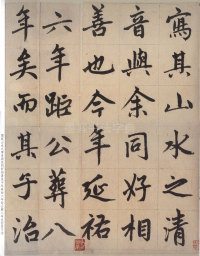 寫其山水之清
音與余同好相
善也今年延祐
六年距公葬八
年矣而其子治